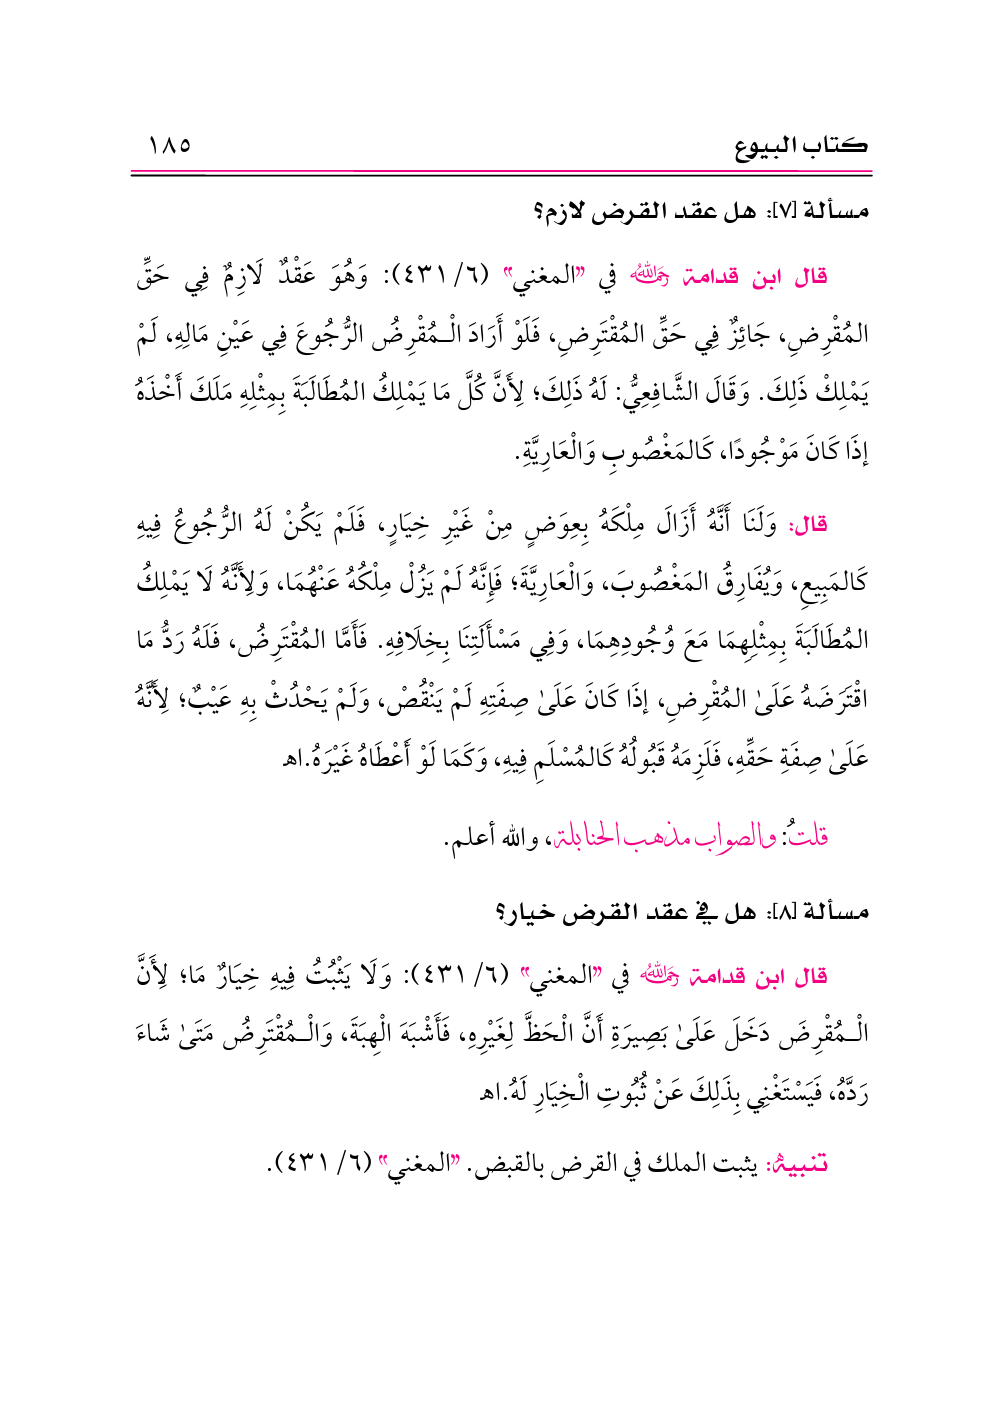 كتاب البيوع ١٨٥
مسألة [٧]: هل عقد القرض لازم؟
قال ابن قدامة رحمه الله في "المغني" (٦/ ٤٣١): وَهُوَ عَقْدٌ لَازِمٌ فِي حَقِّ
المُقْرِضِ، جَائِزٌ فِي حَقِّ المُقْتَرِضِ، فَلَوْ أَرَادَ الْـمُقْرِضُ الرُّجُوعَ فِي عَيْنِ مَالِهِ، لَمْ
يَمْلِكْ ذَلِكَ. وَقَالَ الشَّافِعِيُّ: لَهُ ذَلِكَ؛ لِأَنَّ كُلَّ مَا يَمْلِكُ المُطَالَبَةَ بِمِثْلِهِ مَلَكَ أَخْذَهُ
إذَا كَانَ مَوْجُودًا، كَالمَغْصُوبِ وَالْعَارِيَّةِ.
قال: وَلَنَا أَنَّهُ أَزَالَ مِلْكَهُ بِعِوَضٍ مِنْ غَيْرِ خِيَارٍ، فَلَمْ يَكُنْ لَهُ الرُّجُوعُ فِيهِ
كَالمَبِيعِ، وَيُفَارِقُ المَغْصُوبَ، وَالْعَارِيَّةَ؛ فَإِنَّهُ لَمْ يَزُلْ مِلْكُهُ عَنْهُمَا، وَلِأَنَّهُ لَا يَمْلِكُ
المُطَالَبَةَ بِمِثْلِهِمَا مَعَ وُجُودِهِمَا، وَفِي مَسْأَلَتِنَا بِخِلَافِهِ. فَأَمَّا المُقْتَرِضُ، فَلَهُ رَدُّ مَا
اقْتَرَضَهُ عَلَىٰ المُقْرِضِ، إذَا كَانَ عَلَىٰ صِفَتِهِ لَمْ يَنْقُصْ، وَلَمْ يَحْدُثْ بِهِ عَيْبٌ؛ لِأَنَّهُ
عَلَىٰ صِفَةِ حَقِّهِ، فَلَزِمَهُ قَبُولُهُ كَالمُسْلَمِ فِيهِ، وَكَمَا لَوْ أَعْطَاهُ غَيْرَهُ.اهـ
قلتُ: والصواب مذهب الحنابلة، والله أعلم.
مسألة [٨]: هل في عقد القرض خيار؟
قال ابن قدامة رحمه الله في "المغني" (٦/ ٤٣١): وَلَا يَثْبُتُ فِيهِ خِيَارٌ مَا؛ لِأَنَّ
الْـمُقْرِضَ دَخَلَ عَلَىٰ بَصِيرَةِ أَنَّ الْحَظَّ لِغَيْرِهِ، فَأَشْبَهَ الْهِبَةَ، وَالْـمُقْتَرِضُ مَتَىٰ شَاءَ
رَدَّهُ، فَيَسْتَغْنِي بِذَلِكَ عَنْ ثُبُوتِ الْخِيَارِ لَهُ.اهـ
تنبيهٌ: يثبت الملك في القرض بالقبض. "المغني" (٦/ ٤٣١).